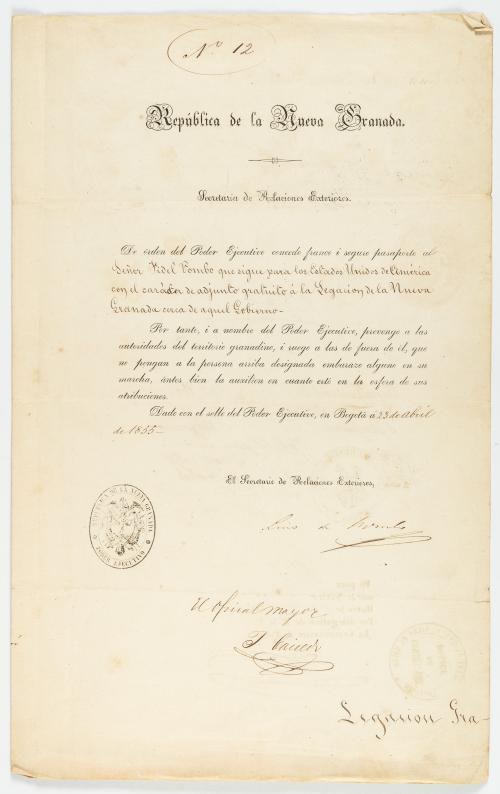 Nº 12
República de la Nueva Granada.
Secretaría de Relaciones Exteriores.
De órden del Poder Ejecutivo concedo franco i seguro pasaporte al
Señor Fidel Pombo que sigue para los Estados Unidos de América
con el carácter de adjunto gratuito á la Legacion de la Nueva
Granada cerca de aquel Gobierno–
Por tanto, i a nombre del Poder Ejecutivo, prevengo a las
autoridades del territorio granadino, i ruego a las de fuera de él, que
no pongan a la persona arriba designada embarazo alguno en su
marcha, ántes bien la auxilien en cuanto esté en la esfera de sus
atribuciones.
Dado con el sello del Poder Ejecutivo, en Bogotá á 23 de abril
de 1855–
El Secretario de Relaciones Exteriores,
REPUBLICA DE LA NUEVA GRANADA
PODER EJECUTIVO
Lino de Pombo
El oficial mayor
Legacion Gra-